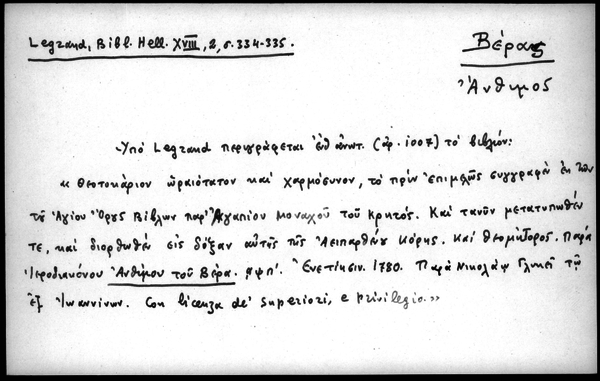 Legrand, Bibl. Hell. XVIII, 2, σ. 334-335.
Βέρας
Ἄνθιμος
Ὑπό Legrand περιγράφεται ἐνθ' ἀνωτ. (ἀρ. 1007) τό βιβλίον:
« Θεοτοκάριον ὡραιότατον καί χαρμόσυνον, τό πρίν ἐπιμελῶς συγγραφέν ἐκ τῶν
τοῦ Ἁγίου Ὄρους Βίβλων παρ' Ἀγαπίου Μοναχοῦ τοῦ Κρητός. Καί τανῦν μετατυπωθέν
τε, καί διορθωθέν εἰς δόξαν αὐτῆς τῆς Ἀειπαρθένου Κόρης. Καί Θεομήτορος. Παρά
Ἱεροδιακόνου Ἀνθίμου τοῦ Βέρα. ͵αψπ'. Ἐνετίησιν. 1780. Παρά Νικολάῳ Γλυκεῖ τῷ
ἐξ Ἰωαννίνων. Con licenza de' superiori, e privilegio.»